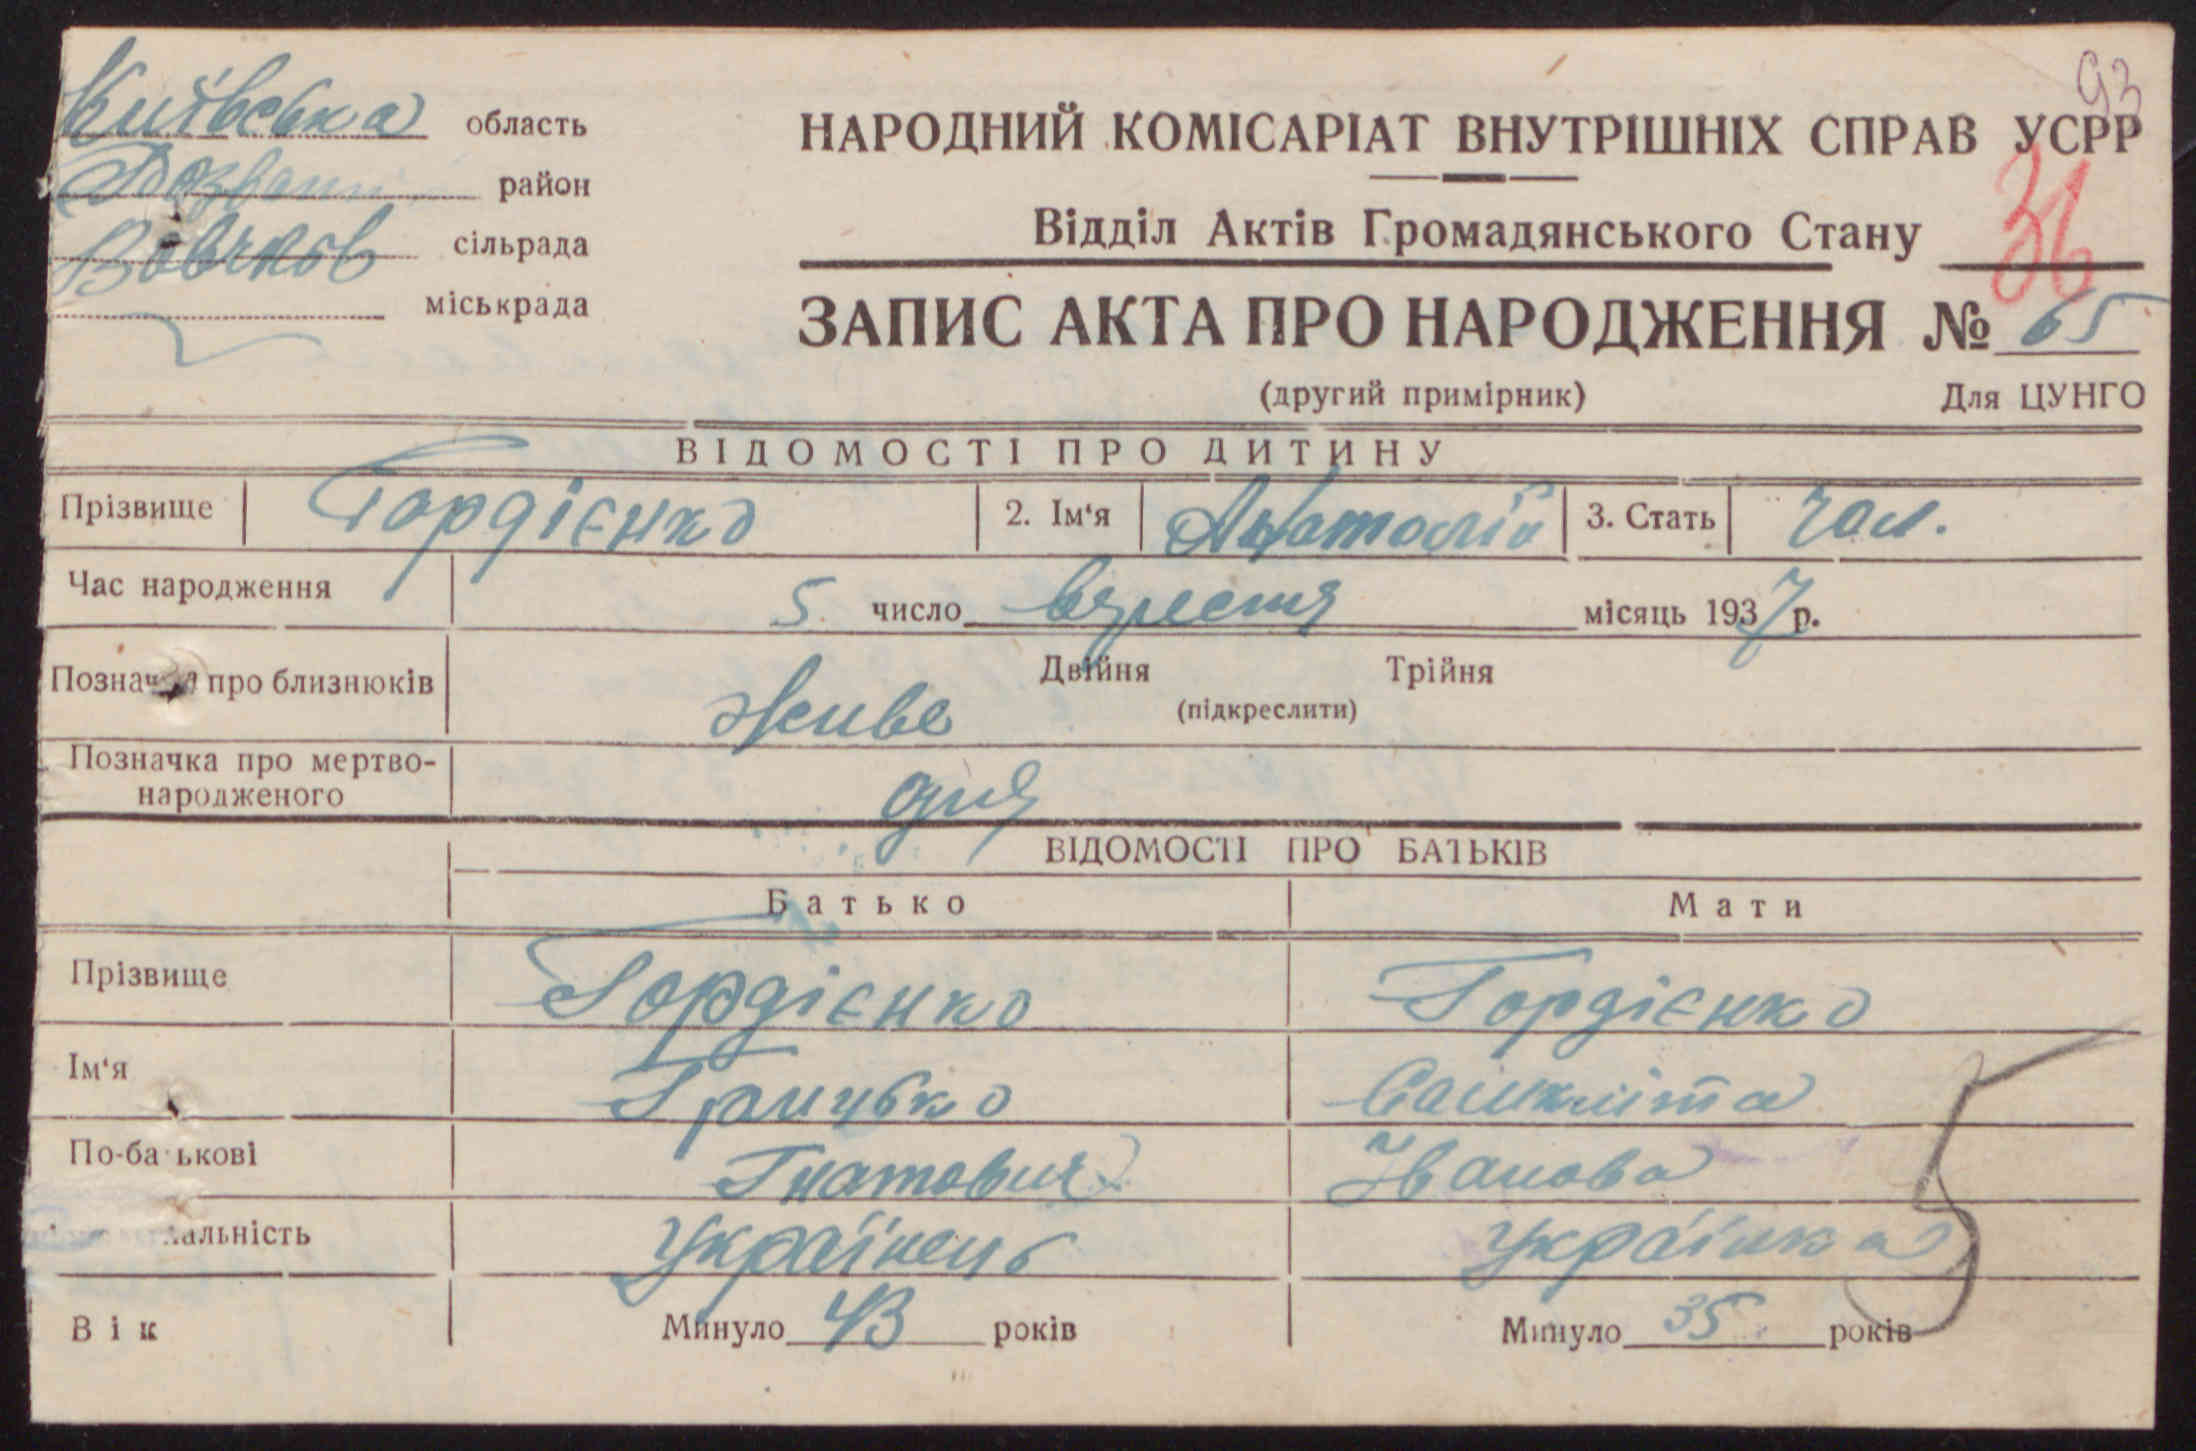 93
Київська область
НАРОДНИЙ КОМІСАРІАТ ВНУТРІШНІХ СПРАВ УСРР
район
36
Вовчков сільрада
Відділ Актів Громадянського Стану
міськрада
ЗАПИС АКТА ПРО НАРОДЖЕННЯ № 65
(другий примірник) Для ЦУНГО
ВІДОМОСТІ ПРО ДИТИНУ
Прізвище Гордієнко 2. Ім'я Анатолій 3. Стать чол.
Час народження 5 число вересня місяць 1937 р.
Позначка про близнюків Двійня Трійня
живе (підкреслити)
Позначка про мертво-
народженого
ВІДОМОСТІ ПРО БАТЬКІВ
Батько Мати
Прізвище Гордієнко Гордієнко
Ім'я Грицько
По-ба ькові Гнатович Іванова
альність Українець Українка
Вік Минуло 43 років Минуло 35 років
5